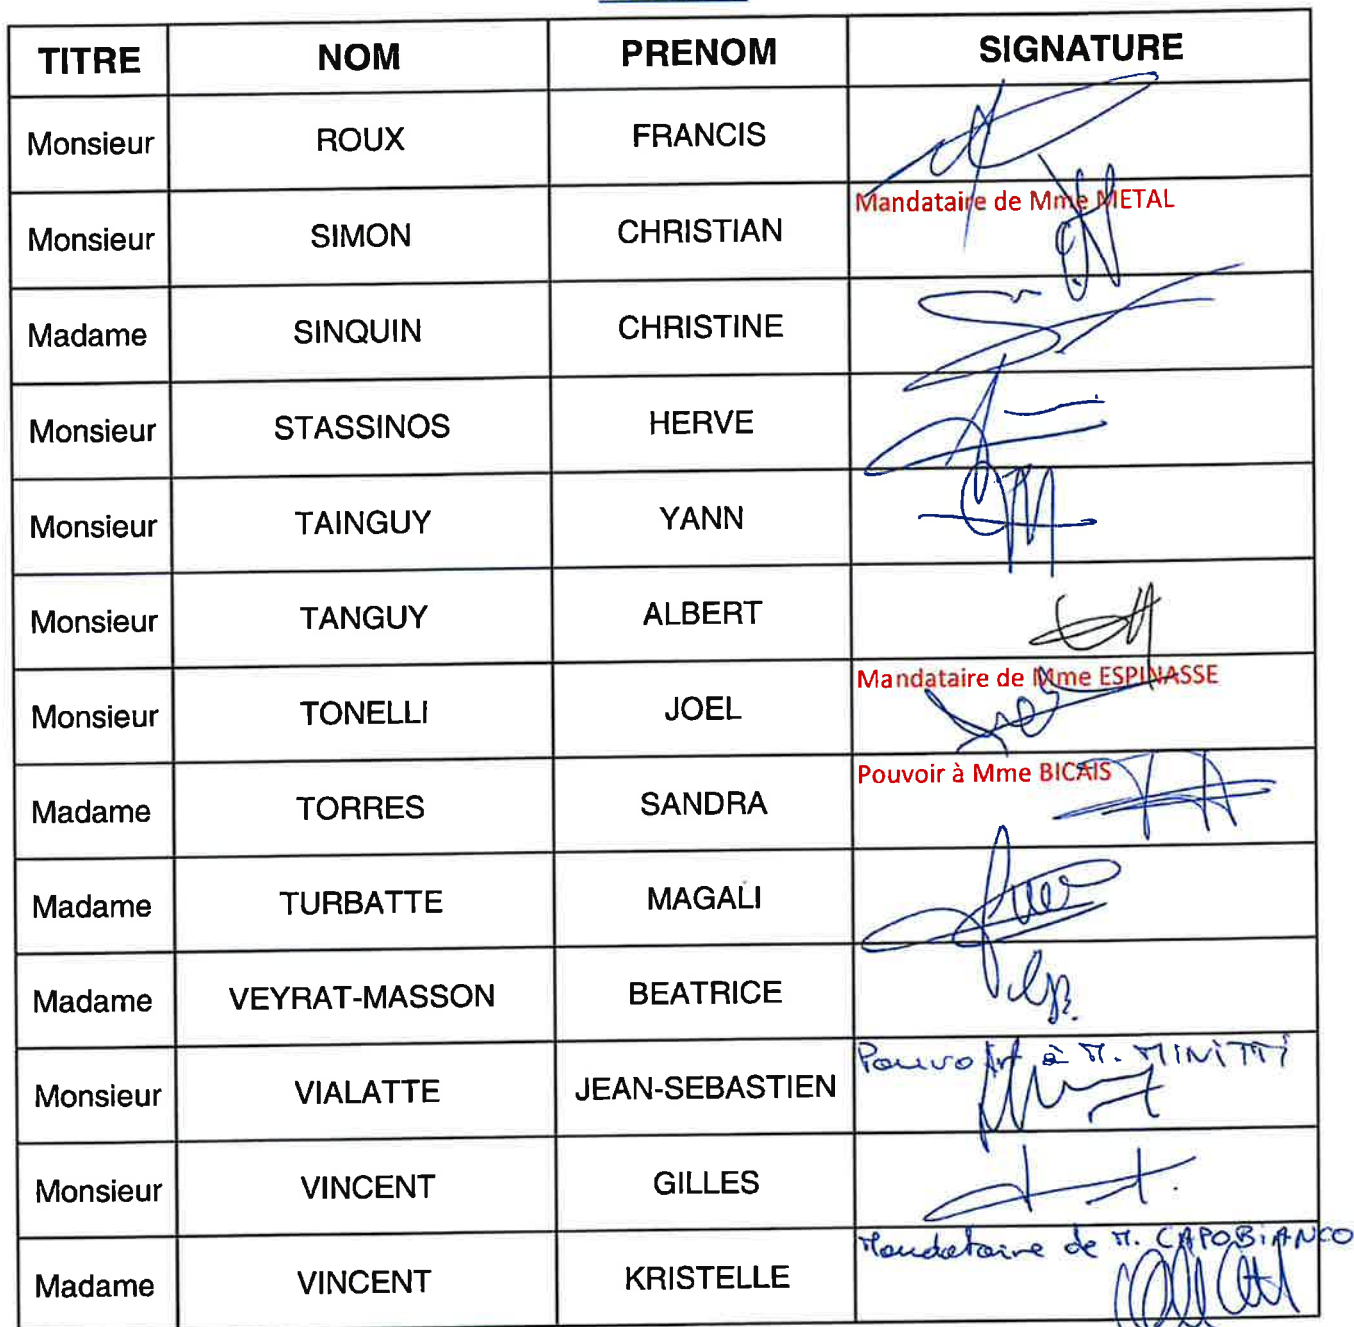 TITRE NOM PRENOM SIGNATURE
Monsieur ROUX FRANCIS
Monsieur SIMON CHRISTIAN Mandataire de Mme METAL
Madame SINQUIN CHRISTINE
Monsieur STASSINOS HERVE
Monsieur TAINGUY YANN
Monsieur TANGUY ALBERT
Monsieur TONELLI JOEL Mandataire de Mme ESPINASSE
Madame TORRES SANDRA Pouvoir à Mme BICAIS
Madame TURBATTE MAGALI
Madame VEYRAT-MASSON BEATRICE
Monsieur VIALATTE JEAN-SEBASTIEN Pouvoir à M. MINITTI
Monsieur VINCENT GILLES
Madame VINCENT KRISTELLE Mandataire de M. CAPOBIANCO